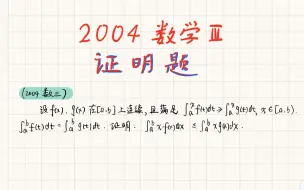 2004 数学Ⅲ
证明题
(2004 数三)
设 f(x), g(x) 在[a,b]上连续, 且满足 ∫ₐˣ f(t)dt ≥ ∫ₐˣ g(t)dt, x∈[a,b).
∫ₐᵇ f(t)dt = ∫ₐᵇ g(t)dt. 证明: ∫ₐᵇ x f(x)dx ≤ ∫ₐᵇ x g(x)dx.